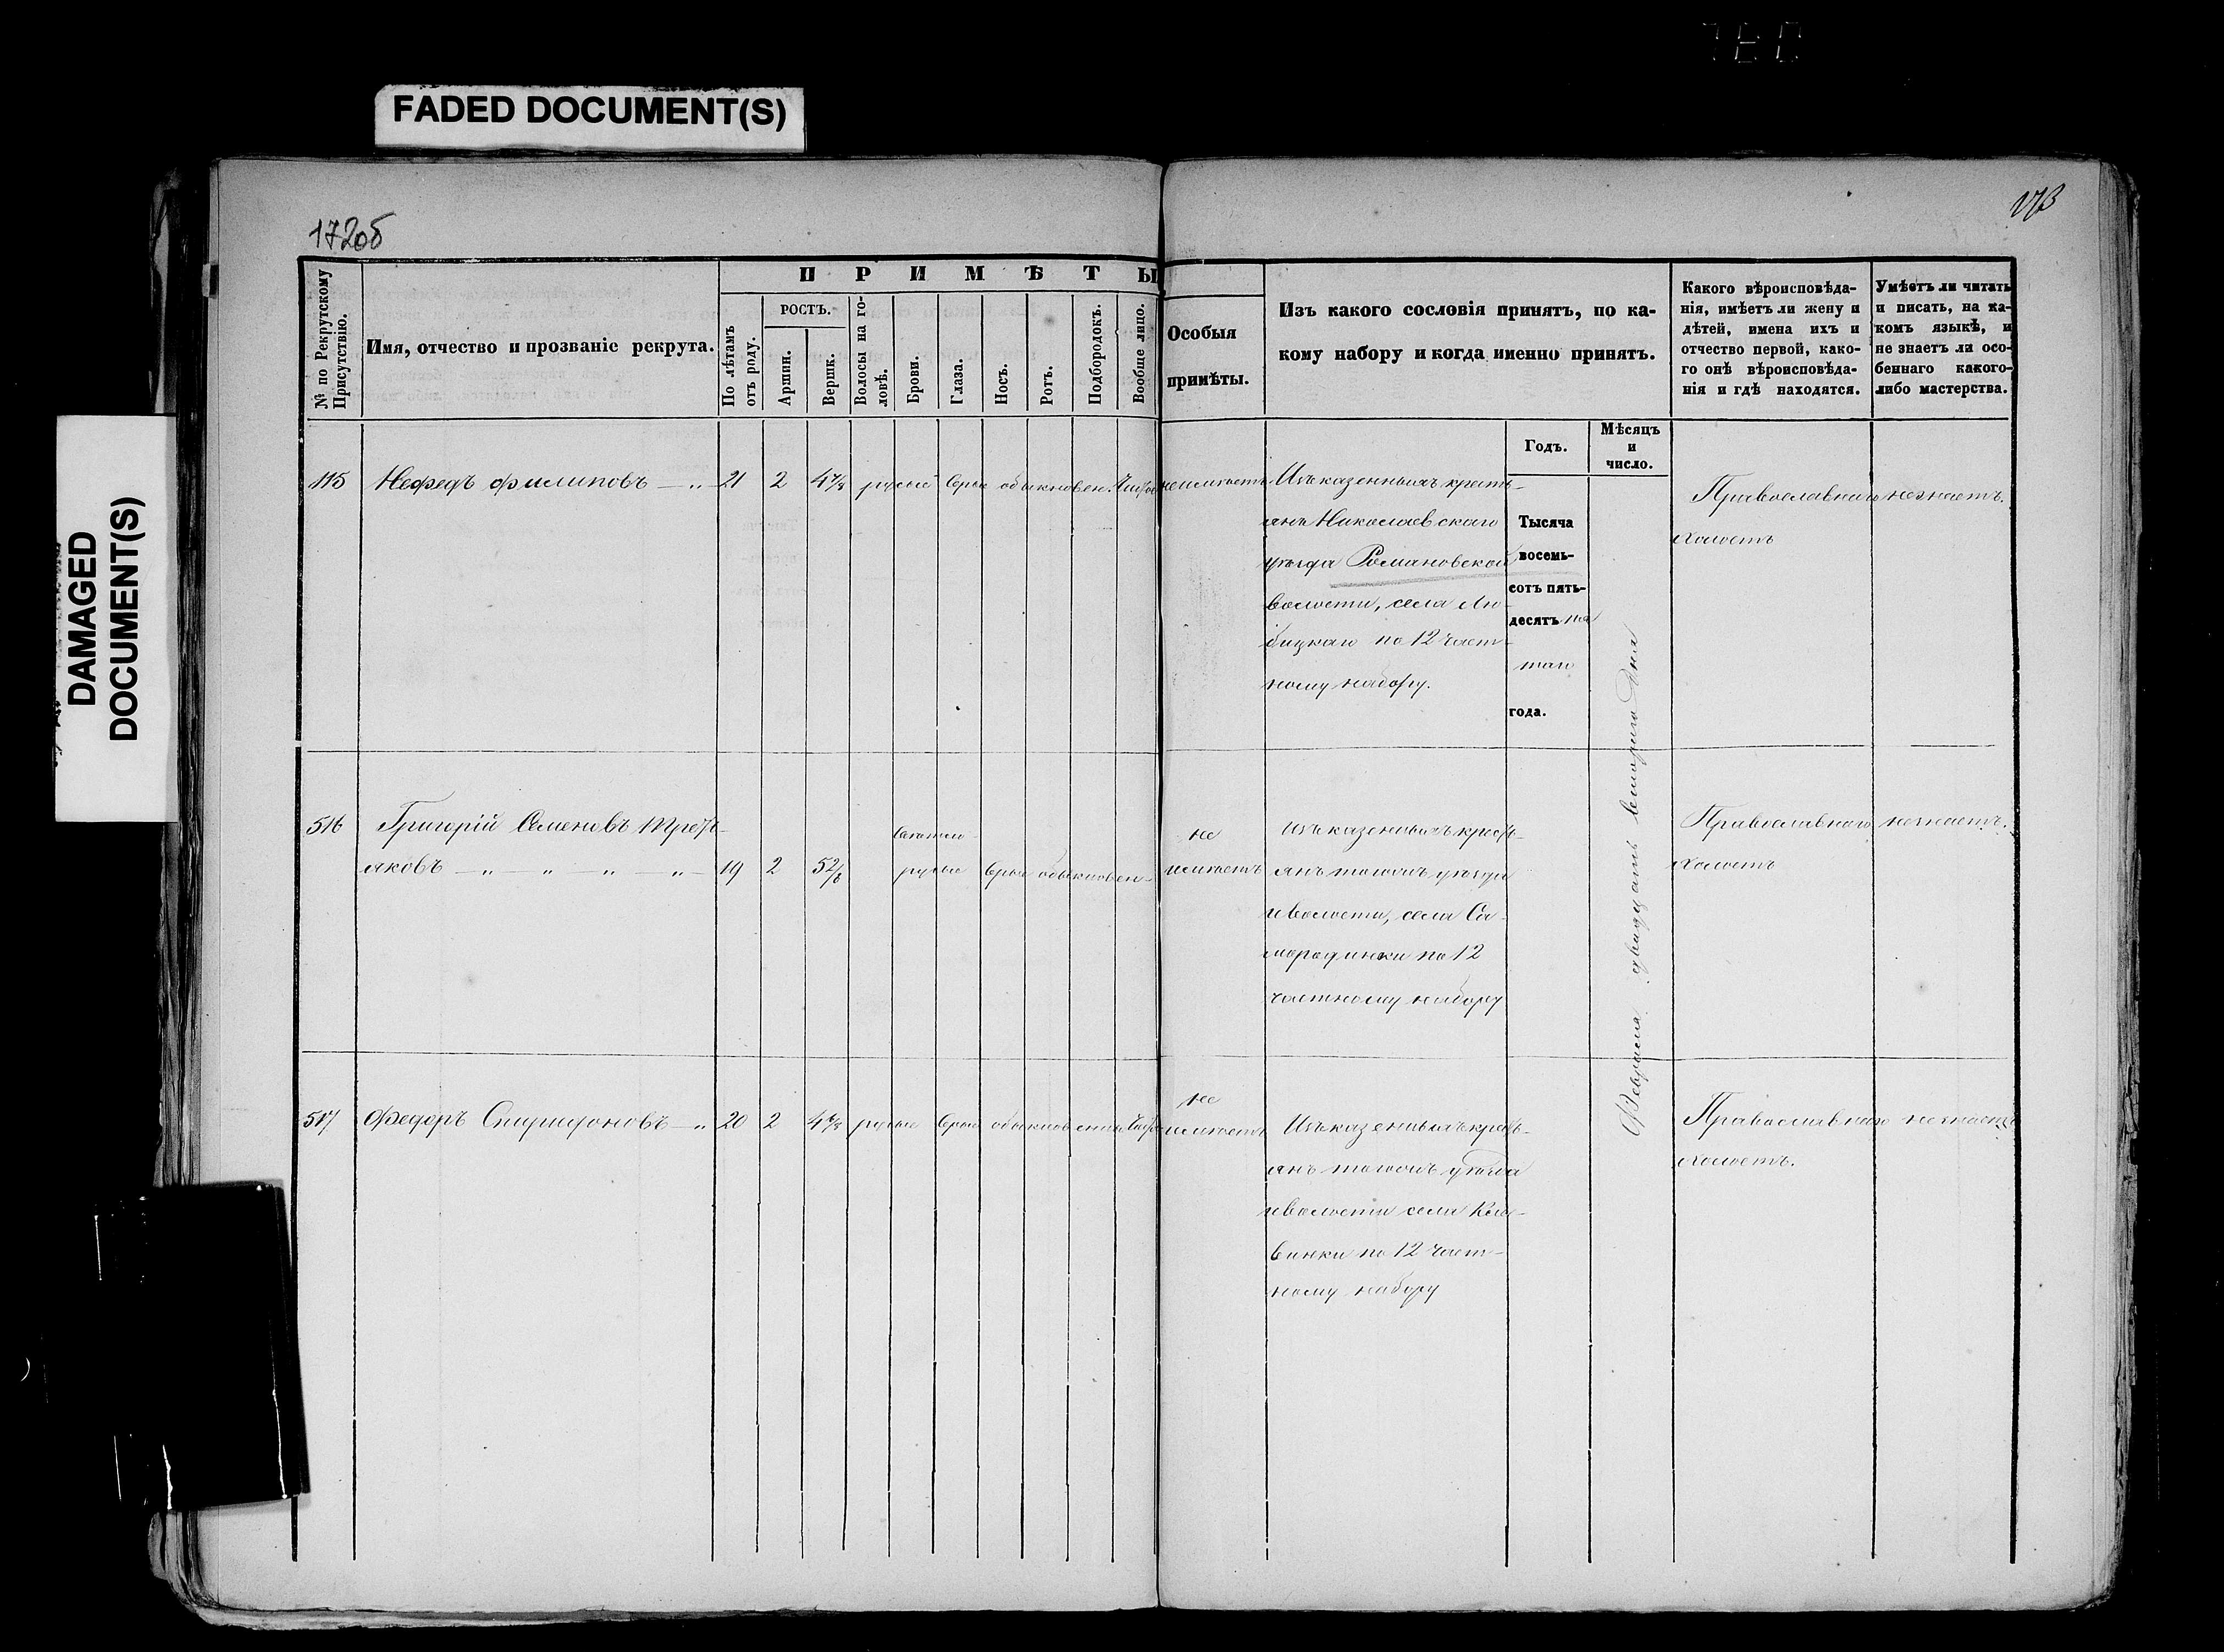 FADED DOCUMENT(S)
DAMAGED
DOCUMENT(S)
172об
173
№ по Рекрутскому
Присутствію.
Имя, отчество и прозваніе рекрута.
ПРИМѢТЫ
По лѣтамъ
отъ роду.
РОСТЪ.
Аршин.
Вершк.
Волосы на го-
ловѣ.
Брови.
Глаза.
Носъ.
Ротъ.
Подбородокъ.
Вообще лицо.
Особыя
примѣты.
Изъ какого сословія принятъ, по ка-
кому набору и когда именно принятъ.
Годъ.
Мѣсяцъ
и
число.
Какого вѣроисповѣда-
нія, имѣетъ ли жену и
дѣтей, имена ихъ и
отчество первой, како-
го онѣ вѣроисповѣда-
нія и гдѣ находятся.
Умѣетъ ли читать
и писать, на ка-
комъ языкѣ, и
не знаетъ ли осо-
беннаго какого-
либо мастерства.
515 Нефедъ Филиповъ — „ 21 2 4 4/8 русые серые обыкновен. чистое неимѣетъ
Изъ казенныхъ кресть-
янъ Николаевскаго
уѣзда Романовской
волости, села Лю-
бицкаго по 12 част-
ному набору.
Тысяча
восемь-
сотъ пять-
десятъ пя
таго
года.
Февраля двадцать втораго дня
Православнаго незнаетъ.
Холостъ
516 Григорій Семеновъ Треть-
яковъ — „ — „ — „ — „ — 19 2 5 2/8 русые серые обыкновен-
не
имѣетъ
Изъ казенныхъ кресть-
янъ тогожъ уѣзда
и волости, села Са-
мородинки по 12
частному набору
Православнаго незнаетъ.
Холостъ
517 Федоръ Спиридоновъ — „ 20 2 4 6/8 русые серые обыкновенны чистое
не
имѣетъ
Изъ казенныхъ кресть-
янъ тогожъ уѣзда
и волости села Кле-
винки по 12 част-
ному набору
Православнаго незнаетъ
Холостъ.